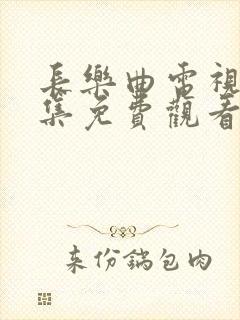 長樂曲電視
集免費觀看
来份鍋包肉